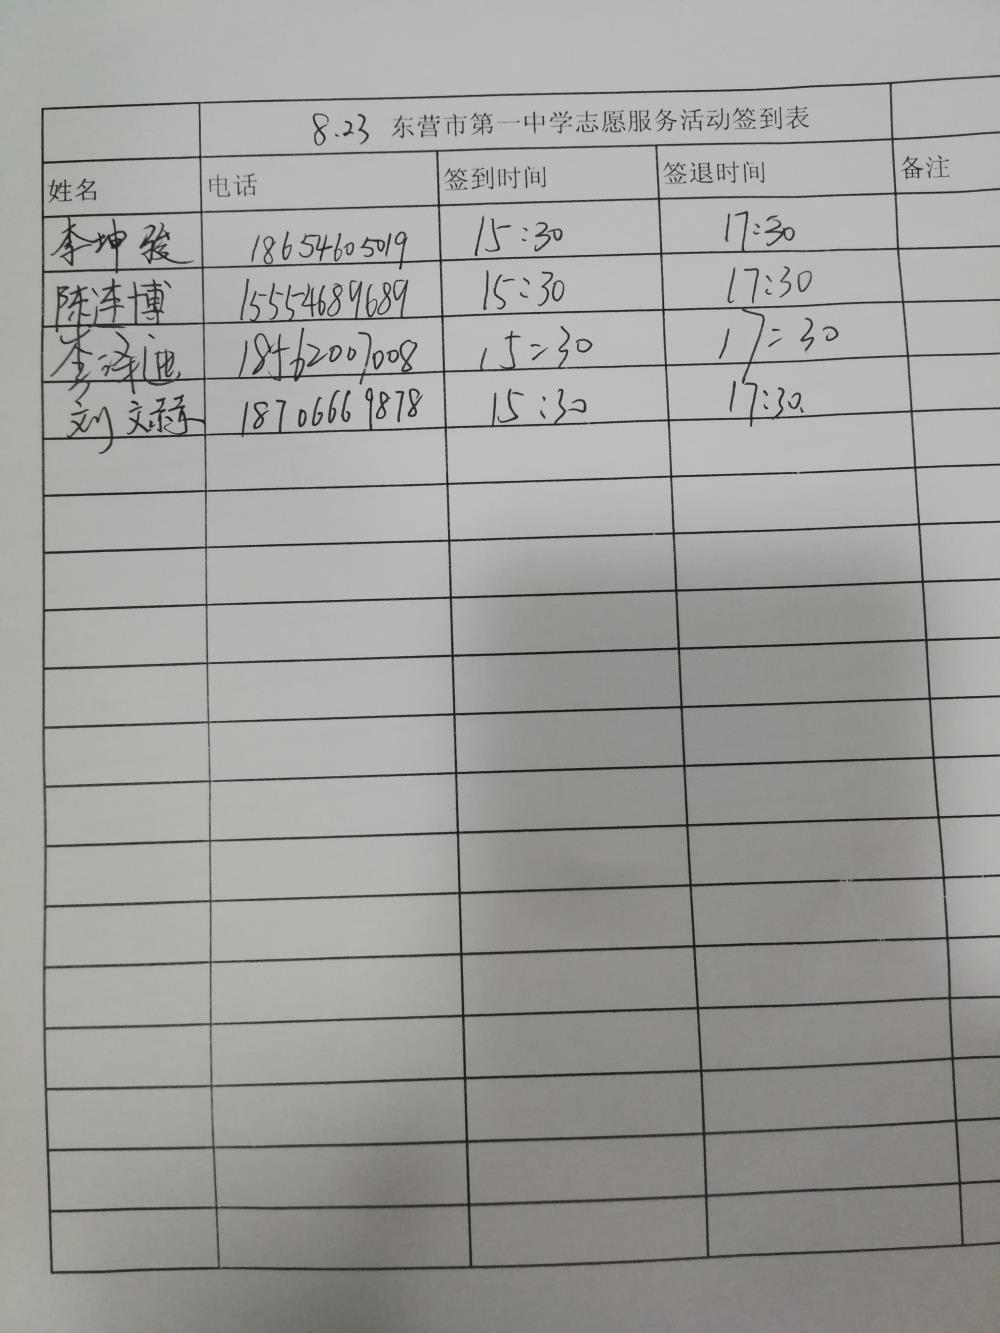 8.23 东营市第一中学志愿服务活动签到表
姓名 电话 签到时间 签退时间 备注
李坤骏 18654605019 15:30 17:30
陈泽博 15554689689 15:30 17:30
李泽迪 18562007008 15:30 17:30
刘文 18706669878 15:30 17:30